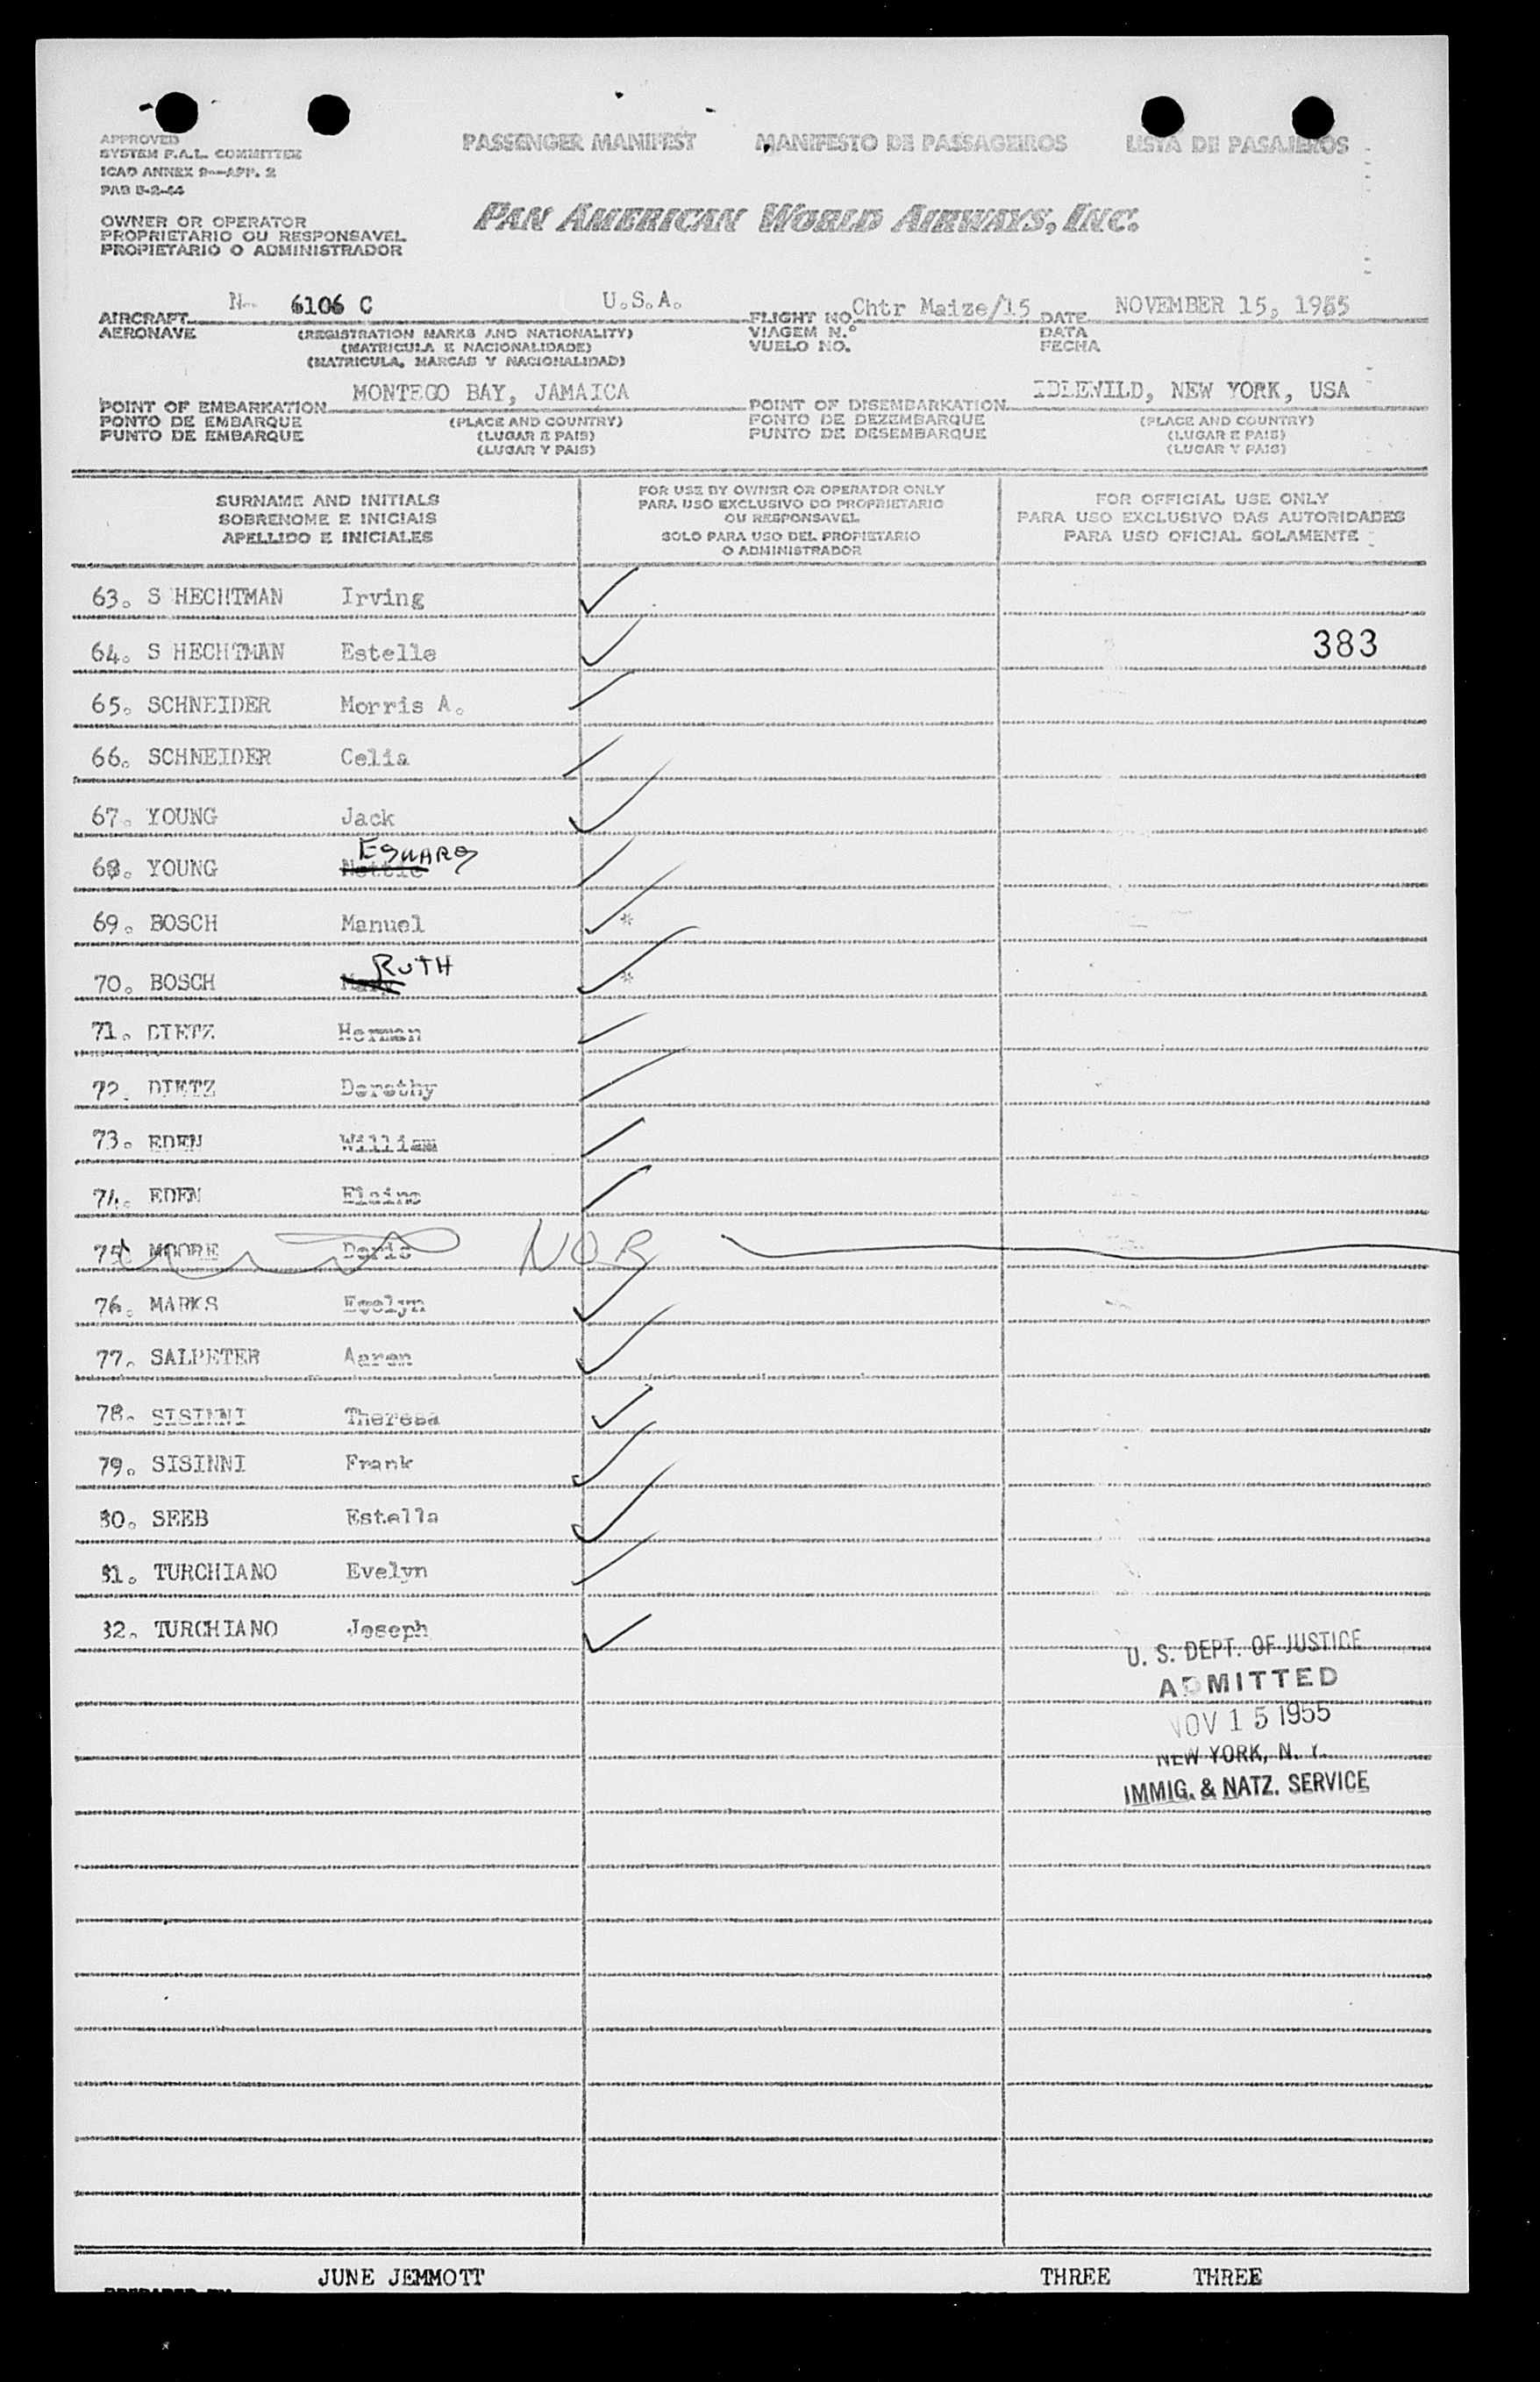 PASSENGER MANIFEST MANIFESTO DE PASSAGEIROS LISTA DE PASAJEROS
APPROVED
SYSTEM F.A.L. COMMITTEE
ICAO ANNEX 9—APP. 2
PAB 5-2-44
OWNER OR OPERATOR
PROPRIETARIO OU RESPONSAVEL
PROPIETARIO O ADMINISTRADOR
PAN AMERICAN WORLD AIRWAYS, INC.
AIRCRAFT N- 6106 C U.S.A. FLIGHT NO. Chtr Maize/15 DATE NOVEMBER 15, 1955
AERONAVE (REGISTRATION MARKS AND NATIONALITY) VIAGEM N.° DATA
(MATRICULA E NACIONALIDADE) VUELO NO. FECHA
(MATRICULA, MARCAS Y NACIONALIDAD)
POINT OF EMBARKATION MONTEGO BAY, JAMAICA POINT OF DISEMBARKATION IDLEWILD, NEW YORK, USA
PONTO DE EMBARQUE (PLACE AND COUNTRY) PONTO DE DEZEMBARQUE (PLACE AND COUNTRY)
PUNTO DE EMBARQUE (LUGAR E PAIS) PUNTO DE DESEMBARQUE (LUGAR E PAIS)
(LUGAR Y PAIS) (LUGAR Y PAIS)
SURNAME AND INITIALS
SOBRENOME E INICIAIS
APELLIDO E INICIALES
FOR USE BY OWNER OR OPERATOR ONLY
PARA USO EXCLUSIVO DO PROPRIETARIO
OU RESPONSAVEL
SOLO PARA USO DEL PROPIETARIO
O ADMINISTRADOR
FOR OFFICIAL USE ONLY
PARA USO EXCLUSIVO DAS AUTORIDADES
PARA USO OFICIAL SOLAMENTE
63. S HECHTMAN Irving ✓
64. S HECHTMAN Estelle ✓ 383
65. SCHNEIDER Morris A. ✓
66. SCHNEIDER Celia ✓
67. YOUNG Jack ✓
68. YOUNG Nettie EDWARD ✓
69. BOSCH Manuel ✓ *
70. BOSCH RUTH ✓ *
71. DIETZ Herman ✓
72. DIETZ Dorothy ✓
73. EDEN William ✓
74. EDEN Elaine ✓
75. MOORE Doris NOB
76. MARKS Evelyn ✓
77. SALPETER Aaron ✓
78. SISINNI Theresa ✓
79. SISINNI Frank ✓
80. SEEB Estella ✓
81. TURCHIANO Evelyn ✓
82. TURCHIANO Joseph ✓
U. S. DEPT. OF JUSTICE
ADMITTED
NOV 15 1955
NEW YORK, N. Y.
IMMIG. & NATZ. SERVICE
JUNE JEMMOTT THREE THREE